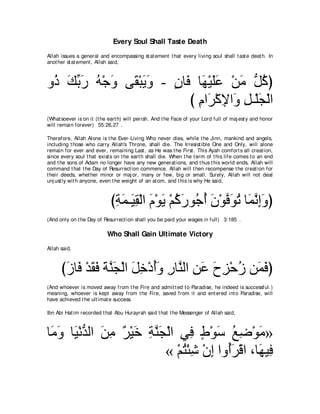 Every Soul Shall Taste Death
Allah issues a general and encompassing statement that every living soul shall taste death. In
another statement, Allah said,
(كُلُّ مَنْ عَلَيْهَا فَانٍ - وَيَبْقَى وَجْهُ رَبِّكَ ذُو
الْجَلَـلِ وَالإِكْرَامِ )
(Whatsoever is on it (the earth) will perish. And the Face of your Lord full of majesty and honor
will remain forever) 55:26,27 .
Therefore, Allah Alone is the Ever-Living Who never dies, while the Jinn, mankind and angels,
including those who carry Allah's Throne, shall die. The Irresistible One and Only, will alone
remain for ever and ever, remaining Last, as He was the First. This Ayah comforts all creation,
since every soul that exists on the earth shall die. When the term of this life comes to an end
and the sons of Adam no longer have any new generations, and thus this world ends, Allah will
command that the Day of Resurrection commence. Allah will then recompense the creation for
their deeds, whether minor or major, many or few, big or small. Surely, Allah will not deal
unjustly with anyone, even the weight of an atom, and this is why He said,
(وَإِنَّمَا تُوَفَّوْنَ أُجُورَكُمْ يَوْمَ الْقِيَـمَةِ)
(And only on the Day of Resurrection shall you be paid your wages in full) 3:185 .
Who Shall Gain Ultimate Victory
Allah said,
(فَمَن زُحْزِحَ عَنِ النَّارِ وَأُدْخِلَ الْجَنَّةَ فَقَدْ فَازَ)
(And whoever is moved away from the Fire and admitted to Paradise, he indeed is successful.)
meaning, whoever is kept away from the Fire, saved from it and entered into Paradise, will
have achieved the ultimate success.
Ibn Abi Hatim recorded that Abu Hurayrah said that the Messenger of Allah said,
«مَوْضِعُ سَوْطٍ فِي الْجَنَّةِ خَيْرٌ مِنَ الدُّنْيَا وَمَا
فِيهَا، اقْرَأُوا إِنْ شِئْتُمْ »